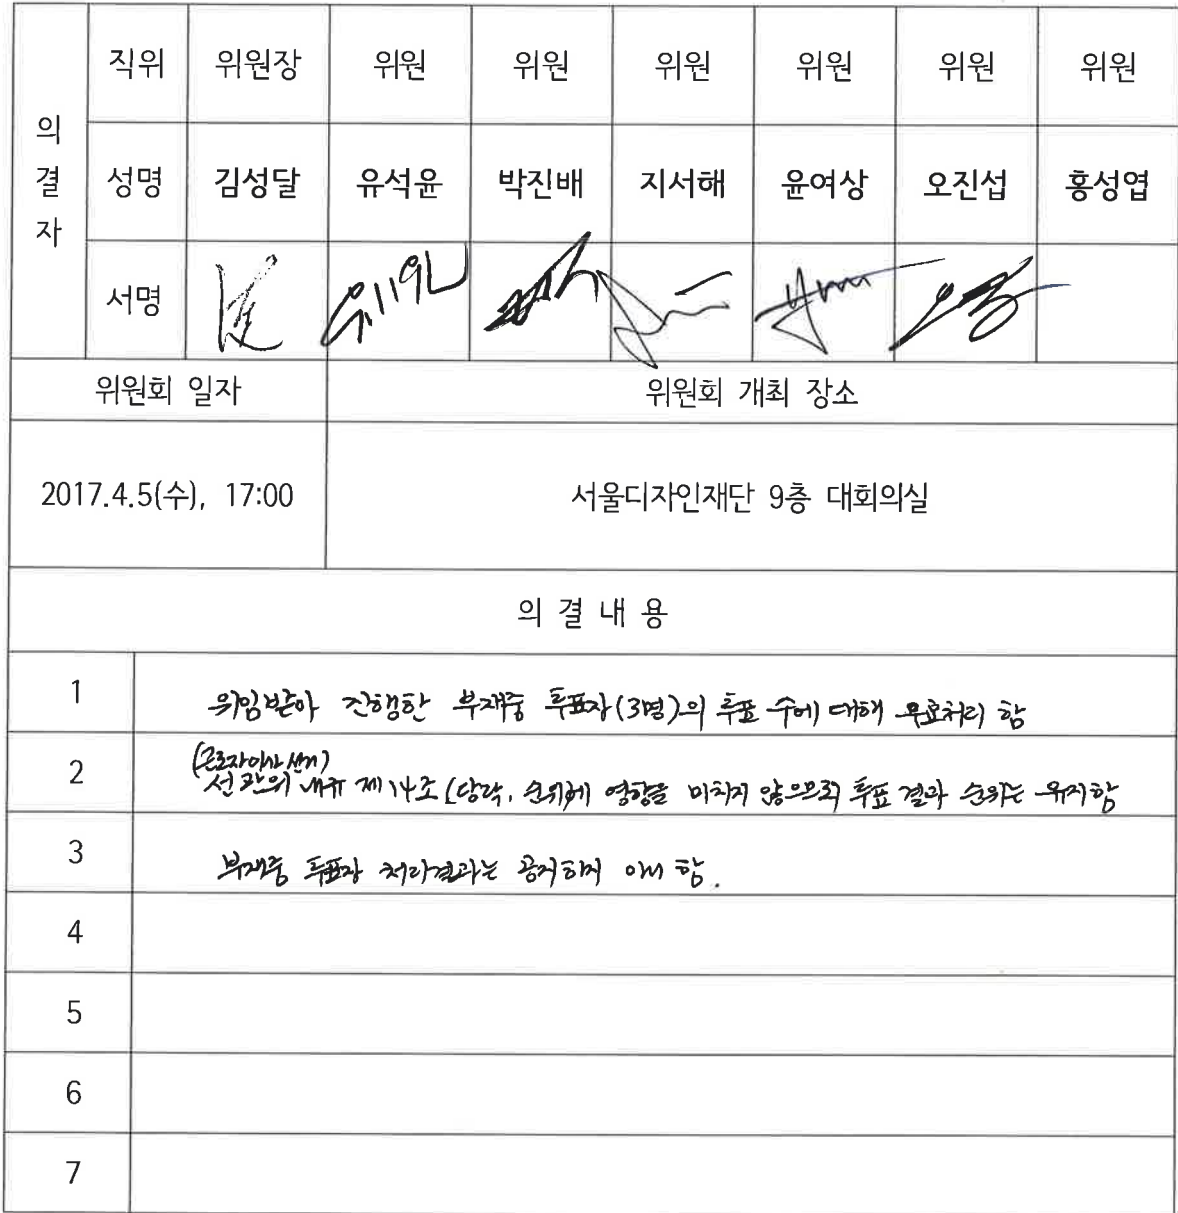 의결자
직위 위원장 위원 위원 위원 위원 위원 위원
성명 김성달 유석윤 박진배 지서해 윤여상 오진섭 홍성엽
서명
위원회 일자 위원회 개최 장소
2017.4.5(수), 17:00 서울디자인재단 9층 대회의실
의 결 내 용
1 위임받아 진행한 부재중 투표자(3명)의 투표 수에 대해 무효처리 함
(근로자이사 선거)
2 선관위 내규 제14조 (당락, 순위)에 영향을 미치지 않으므로 투표 결과 순위는 유지함
3 부재중 투표자 처리결과는 공지하지 함.
4
5
6
7